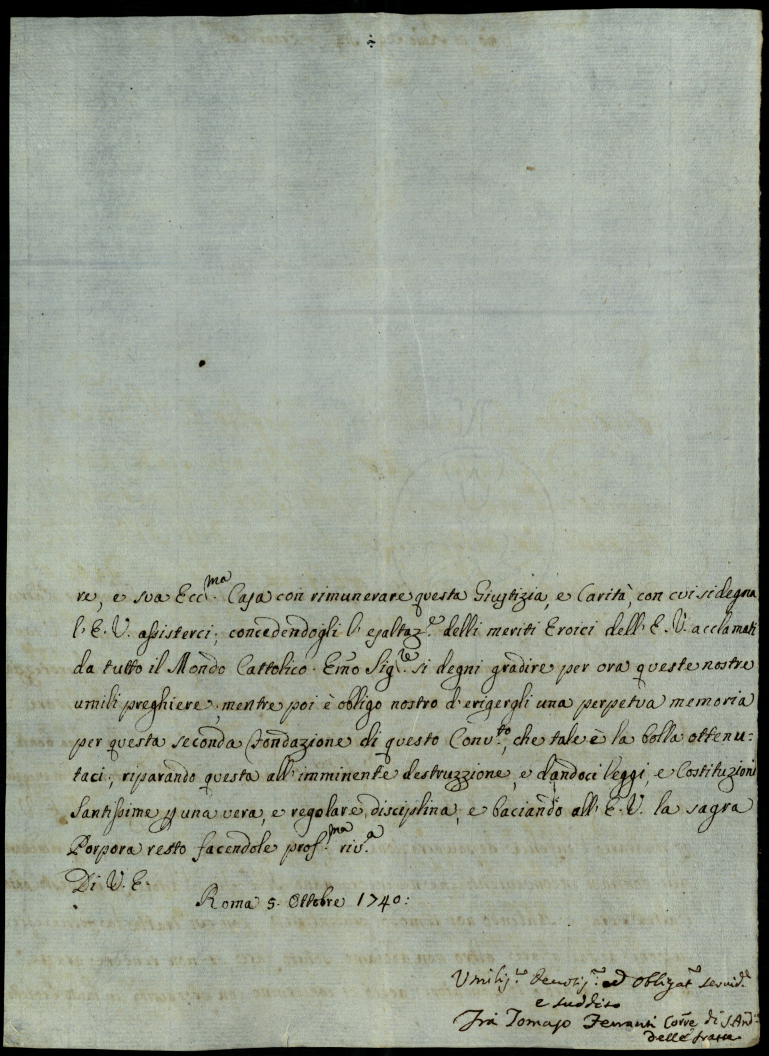 re, e sua Ecc.ma Casa con rimunerare questa Giustizia, e Carità, con cui si degna
l'E. V. assisterci; concedendogli l'esaltaz.e delli meriti Eroici dell'E. V. acclamati
da tutto il Mondo Cattolico. Emo Sig.re si degni gradire per ora queste nostre
umili preghiere, mentre poi è obligo nostro d'erigergli una perpetua memoria
per questa seconda Fondazione di questo Conv.to, che tale è la bolla ottenu-
taci; riparando questa all'imminente destruzzione, e dandoci leggi, e Costituzioni
Santissime p una vera, e regolare disciplina, e baciando all'E. V. la sagra
Porpora resto facendole prof.ma riv.a
Di V. E.
Roma 5. Ottobre 1740:
Umilis.mo Devotis.mo ed Obligat.mo servid.e
e suddito
Frà Tomaso Ferranti Corre di S. And.a
delle fratte